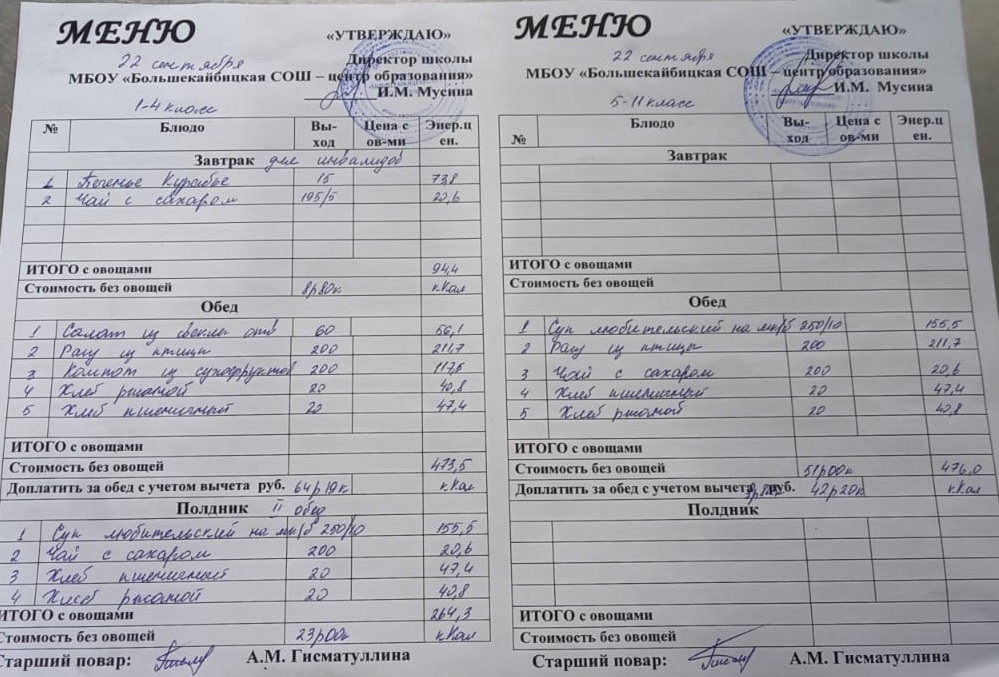 МЕНЮ
«УТВЕРЖДАЮ»
22 сентября
Директор школы
МБОУ «Большекайбицкая СОШ – центр образования»
И.М. Мусина
1-4 класс
№ Блюдо Вы-ход Цена с ов-ми Энер.ц ен.
Завтрак для инвалидов
1 Печенье Курабье 15 73,8
2 Чай с сахаром 195/5 20,6
ИТОГО с овощами 94,4
Стоимость без овощей 8р80к кКал
Обед
1 Салат из свеклы отв 60 56,1
2 Рагу из птицы 200 211,7
3 Компот из сухофруктов 200 117,5
4 Хлеб ржаной 20 40,8
5 Хлеб пшеничный 20 47,4
ИТОГО с овощами
Стоимость без овощей 473,5
Доплатить за обед с учетом вычета руб. 64р19к кКал
Полдник II обед
1 Суп любительский на мк/б 250/10 155,5
2 Чай с сахаром 200 20,6
3 Хлеб пшеничный 20 47,4
4 Хлеб ржаной 20 40,8
ИТОГО с овощами 264,3
Стоимость без овощей 23р00к кКал
Старший повар: А.М. Гисматуллина
МЕНЮ
«УТВЕРЖДАЮ»
22 сентября
Директор школы
МБОУ «Большекайбицкая СОШ – центр образования»
И.М. Мусина
5-11 класс
№ Блюдо Вы-ход Цена с ов-ми Энер.ц ен.
Завтрак
ИТОГО с овощами
Стоимость без овощей
Обед
1 Суп любительский на мк/б 250/10 155,5
2 Рагу из птицы 200 211,7
3 Чай с сахаром 200 20,6
4 Хлеб пшеничный 20 47,4
5 Хлеб ржаной 20 40,8
ИТОГО с овощами
Стоимость без овощей 51р00к 476,0
Доплатить за обед с учетом вычета руб. 42р20к кКал
Полдник
ИТОГО с овощами
Стоимость без овощей
Старший повар: А.М. Гисматуллина